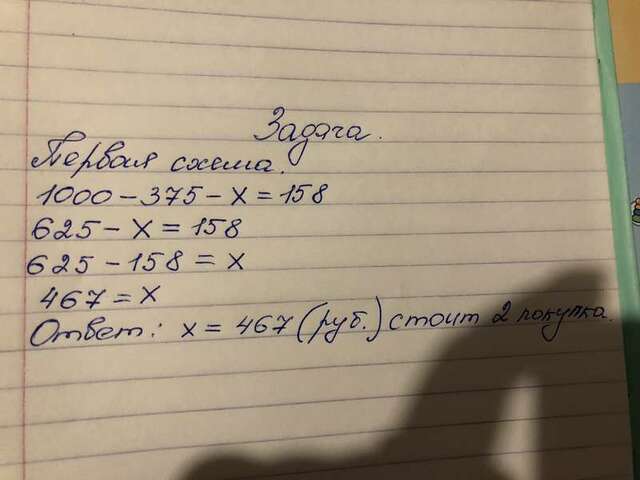 Задача.
Первая схема.
1000 - 375 - x = 158
625 - x = 158
625 - 158 = x
467 = x
Ответ: x = 467 (руб.) стоит 2 покупка.